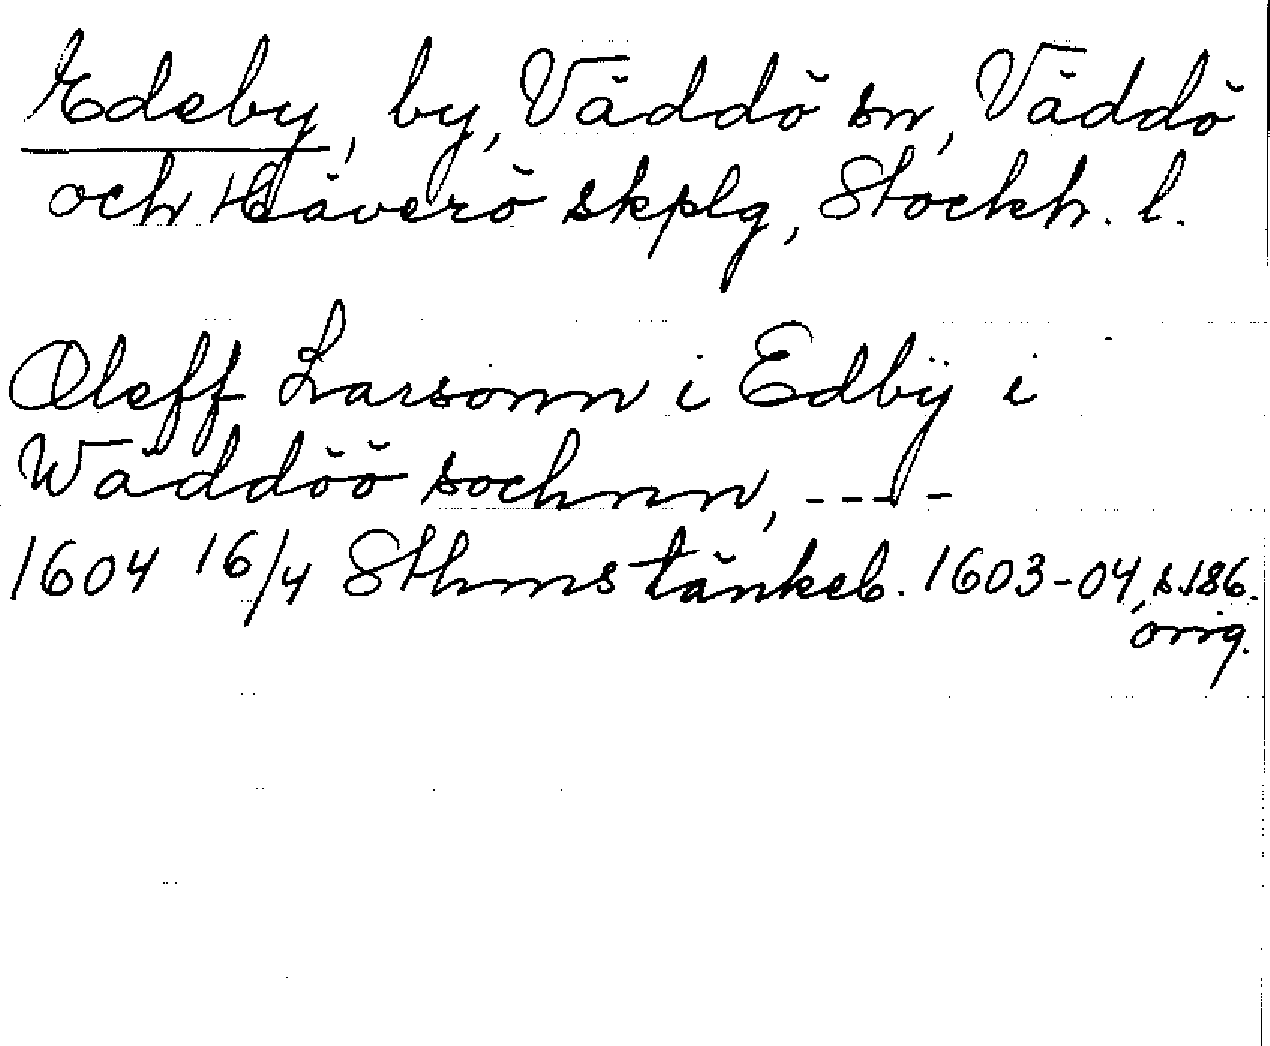 Edeby, by, Väddö sn, Väddö
och Häverö skplg, Stockh. l.
Oleff Larsonn i Edbÿ i
Wäddöö sochnnn, ----
1604 16/4 Sthms tänkeb. 1603-04, s. 186.
orig.